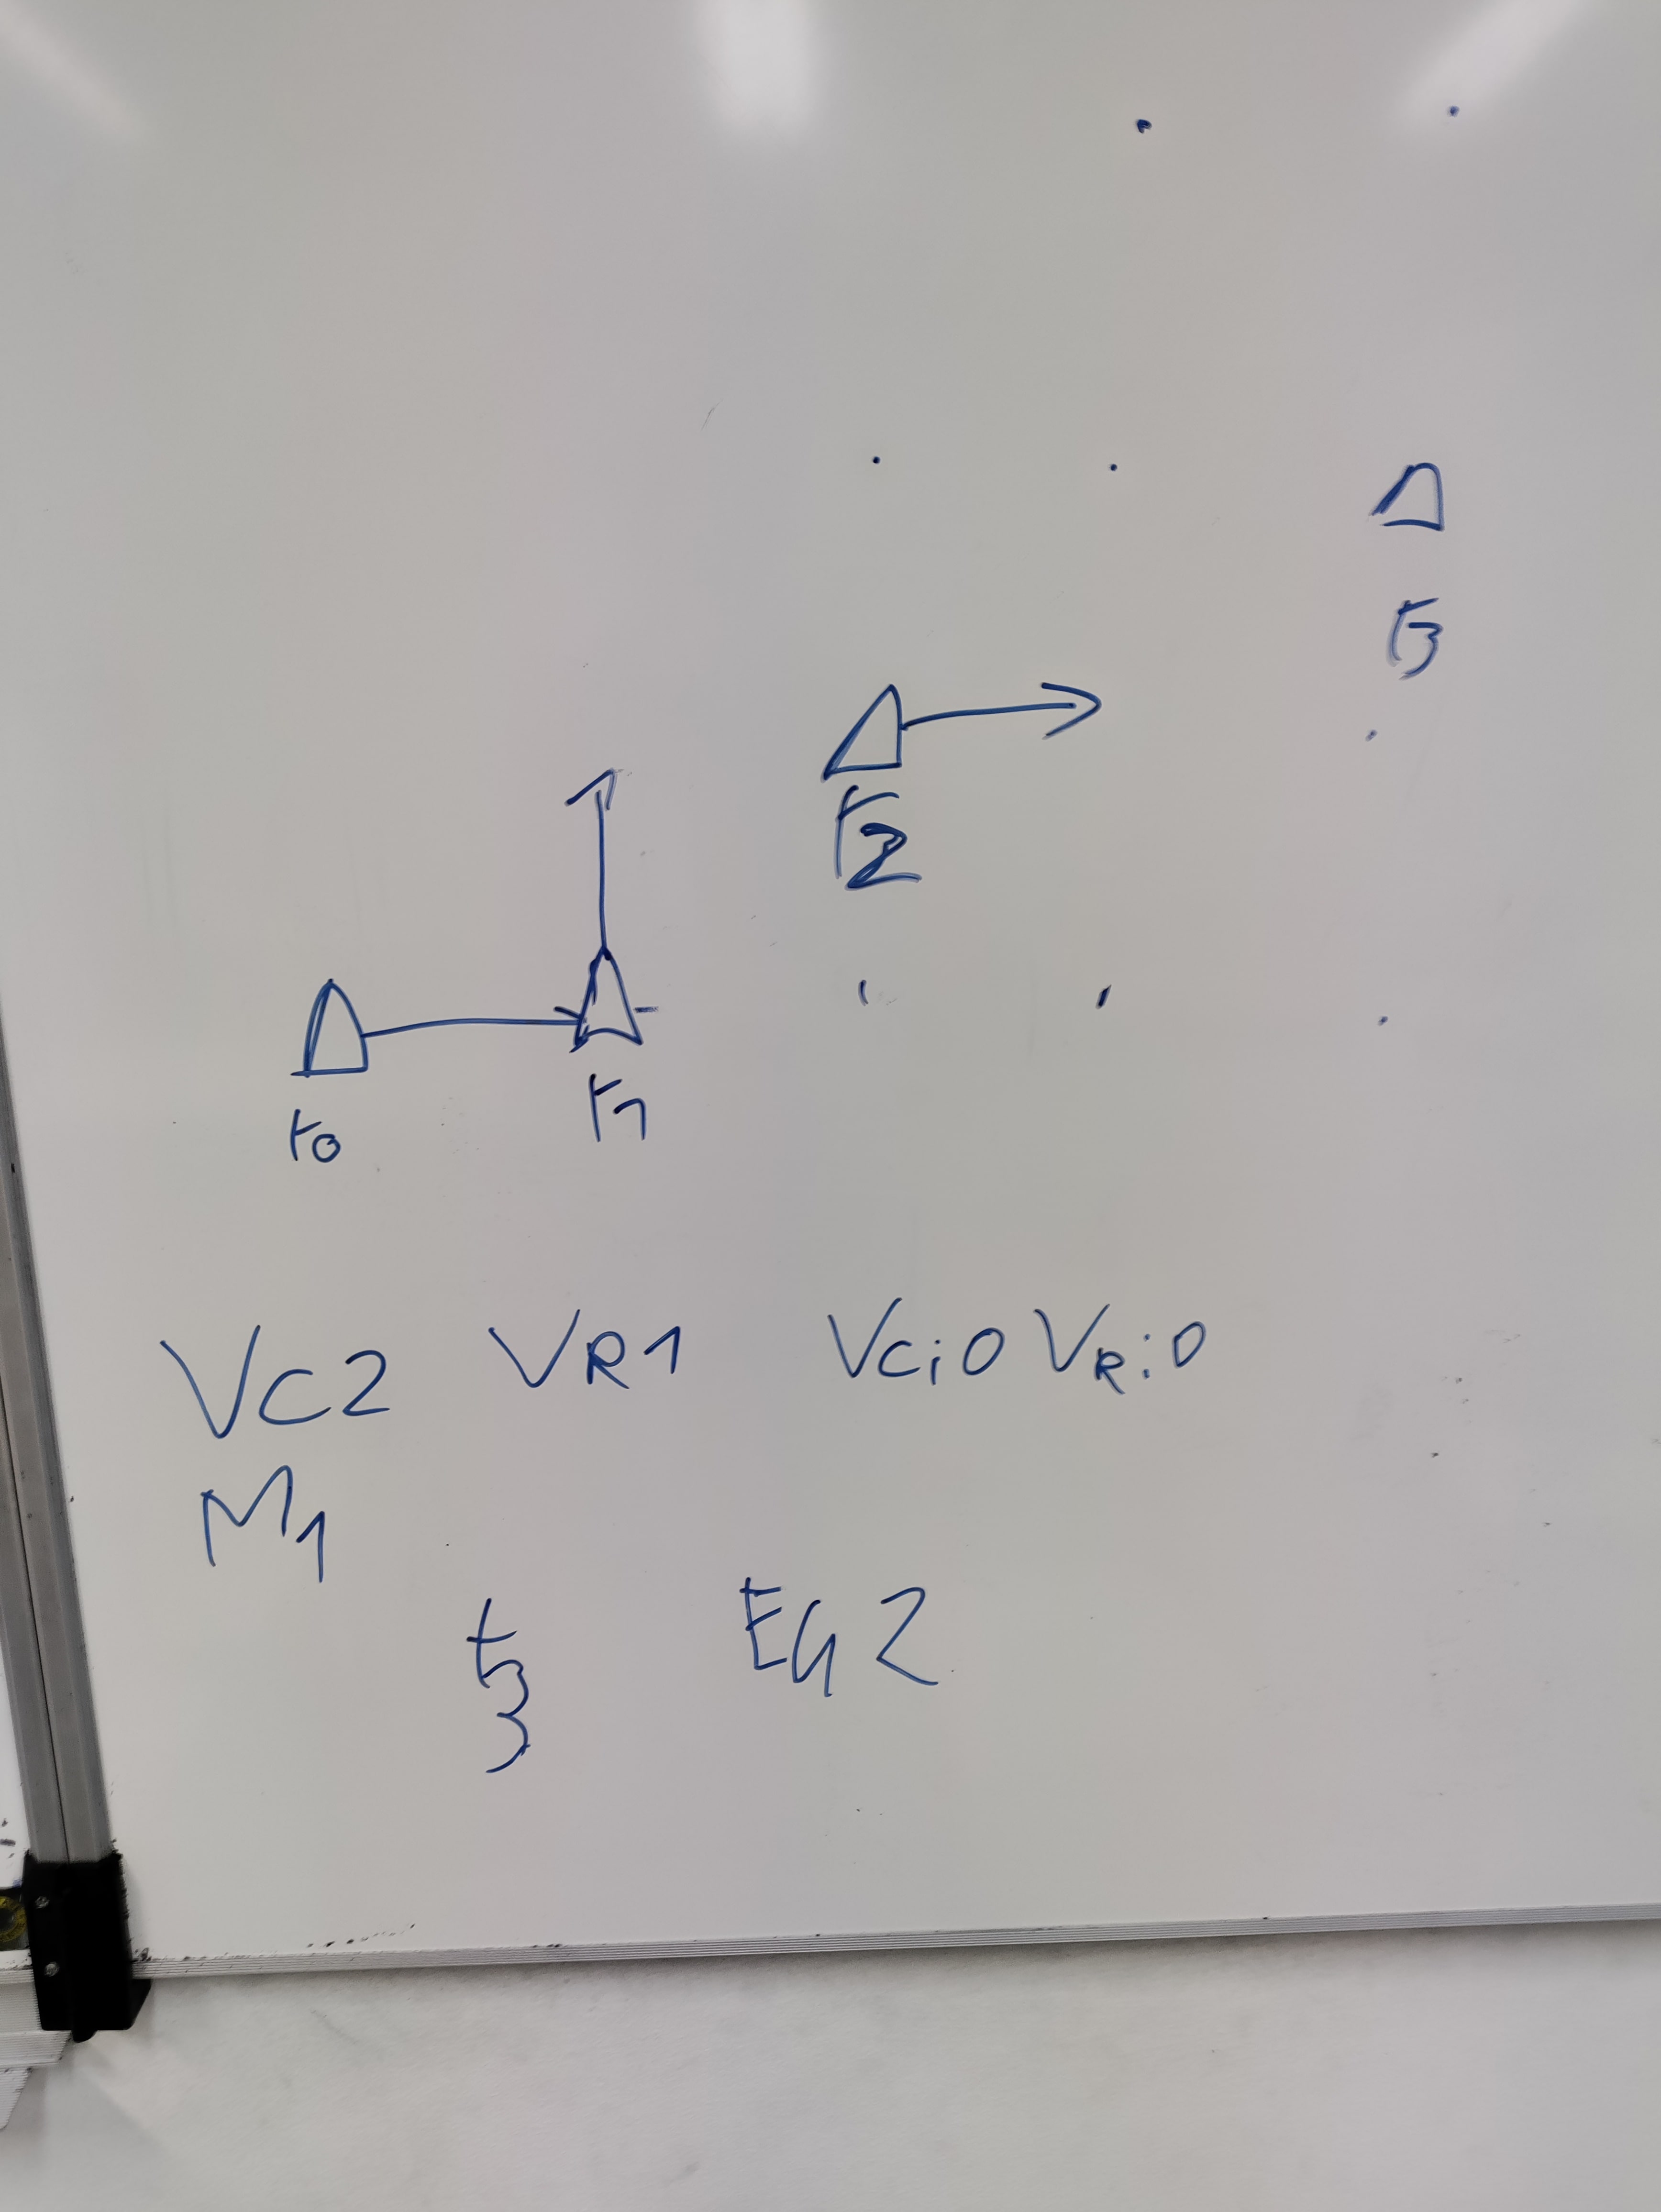 t3
t2
t0 t1
VC2 VR1 VCi0 VRi0
M1
t3 EG2